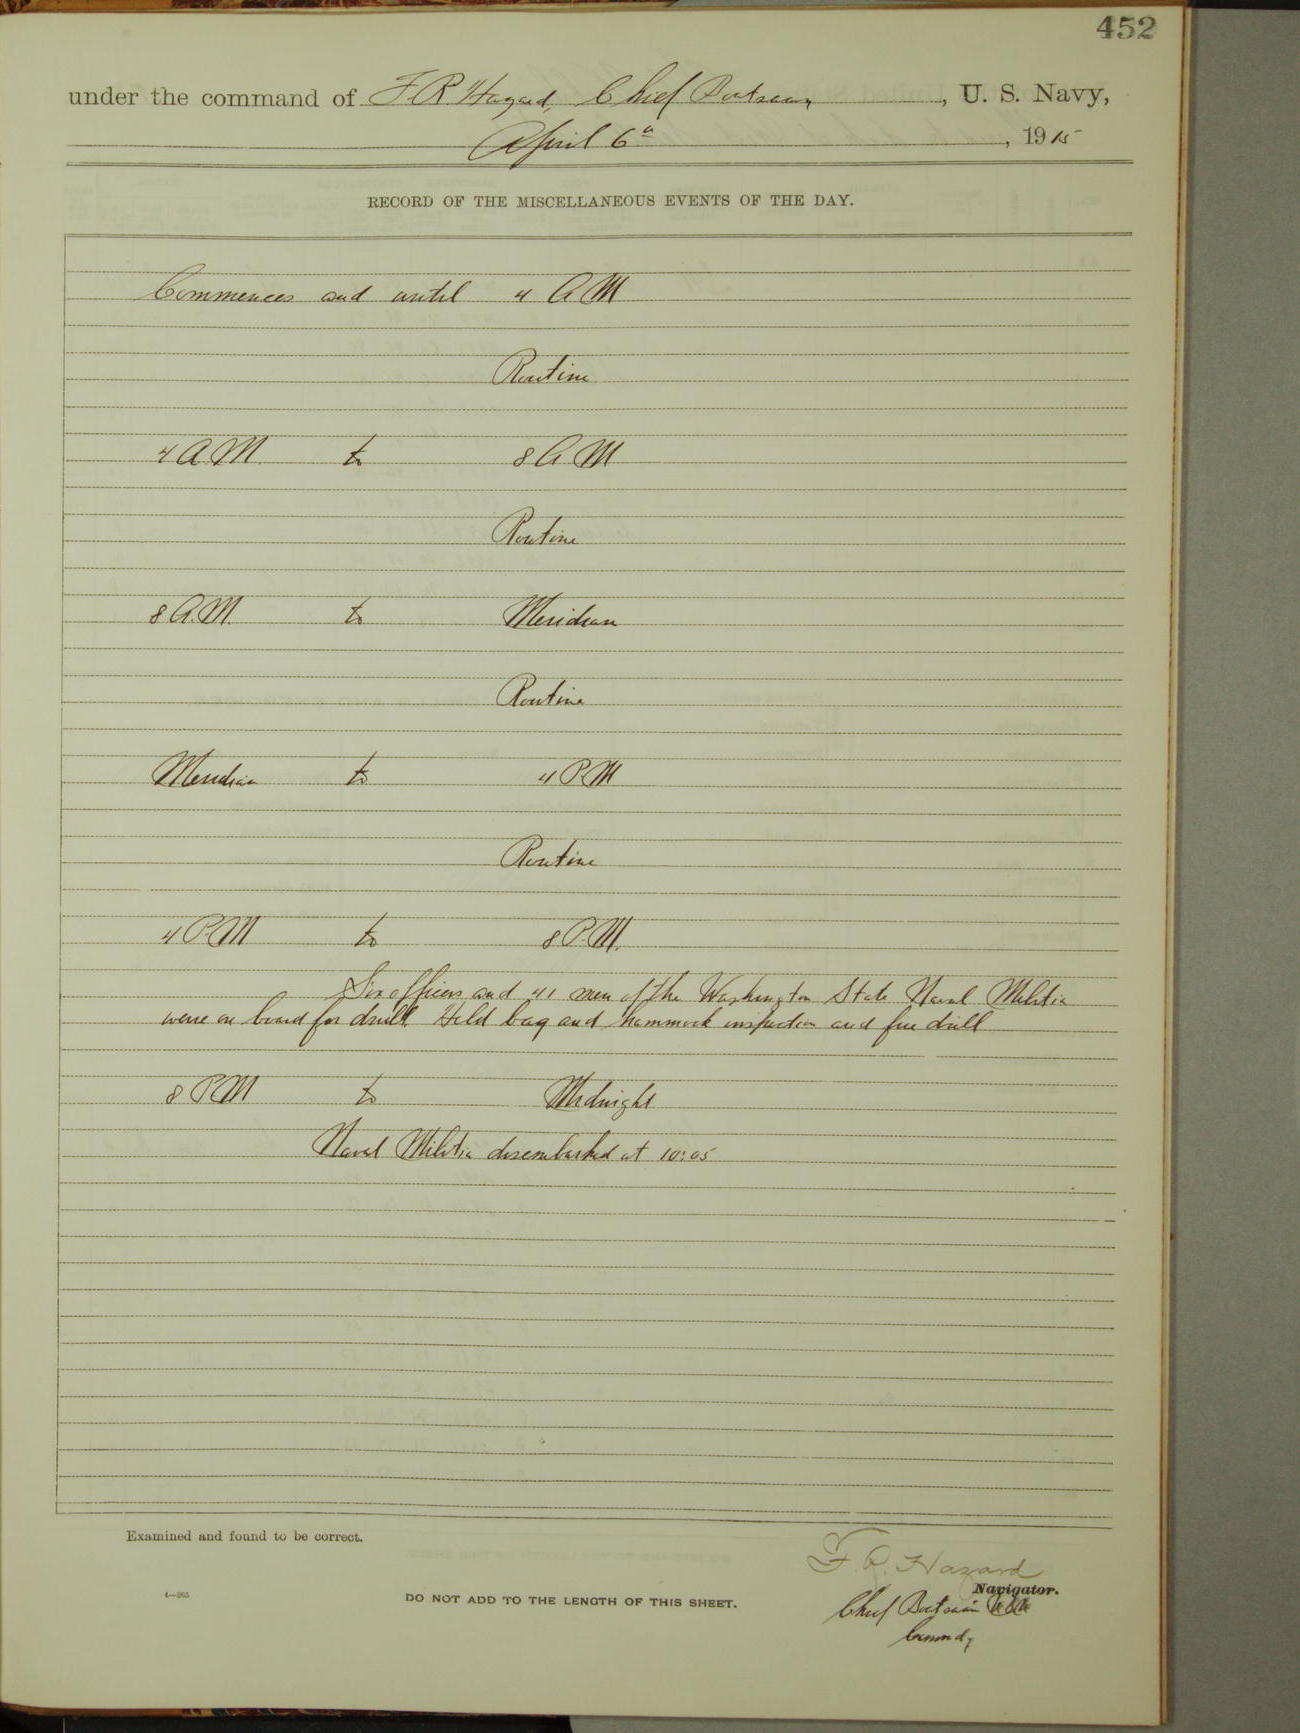 452
under the command of F. R. Hazard, Chief Boatswain, U. S. Navy,
April 6th, 1915
RECORD OF THE MISCELLANEOUS EVENTS OF THE DAY.
Commences and until 4 A M
Routine
4 A.M. to 8 A M
Routine
8 A.M. to Meridian
Routine
Meridian to 4 P.M
Routine
4 P.M to 8 P.M.
Six officers and 41 men of the Washington State Naval Militia
were on board for drill. Held bag and hammock inspection and fire drill
8 P.M to Midnight
Naval Militia disembarked at 10:05
Examined and found to be correct.
F. R. Hazard
Navigator.
4—965
DO NOT ADD TO THE LENGTH OF THIS SHEET.
Chief Boatswain USN
Commdg